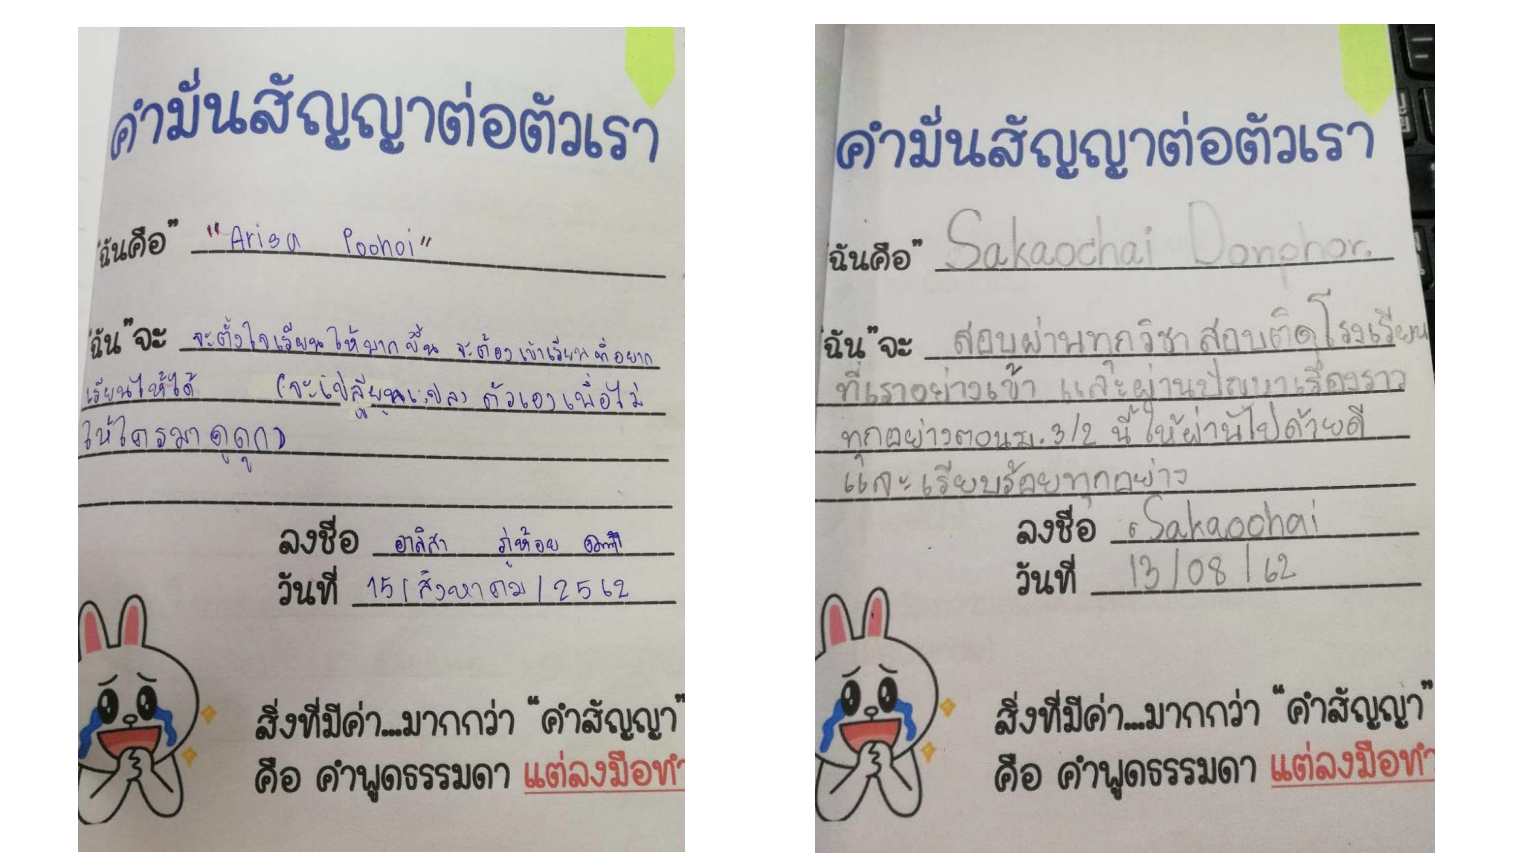 คำมั่นสัญญาต่อตัวเรา
"ฉันคือ" "Arisa Poohoi"
"ฉัน"จะ จะตั้งใจเรียนให้มากขึ้น จะต้องเข้าเรียนที่อยาก
เรียนให้ได้ (จะเปลี่ยนแปลง ตัวเองเพื่อไม่
ให้ใครมาดูถูก)
ลงชื่อ อาลิสา ภู่ห้อย
วันที่ 15 / สิงหาคม / 2562
สิ่งที่มีค่า...มากกว่า "คำสัญญา"
คือ คำพูดธรรมดา แต่ลงมือทำ
คำมั่นสัญญาต่อตัวเรา
"ฉันคือ" Sakaochai Donphor.
"ฉัน"จะ สอบผ่านทุกวิชา สอบติดโรงเรียน
ที่เราอย่างเข้า และผ่านปัญหาเรื่องราว
ทุกอย่างตอนม.3/2 นี้ ให้ผ่านไปด้วยดี
และเรียบร้อยทุกอย่าง
ลงชื่อ Sakaochai
วันที่ 13/08/62
สิ่งที่มีค่า...มากกว่า "คำสัญญา"
คือ คำพูดธรรมดา แต่ลงมือทำ